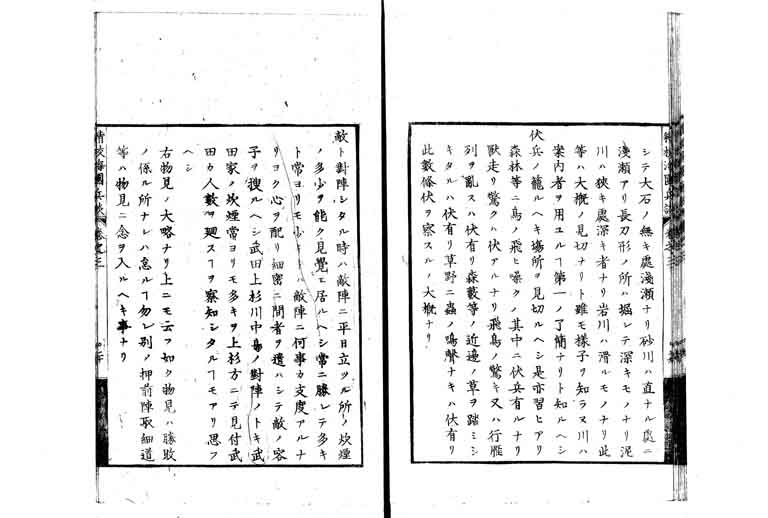 シテ大石ノ無キ處淺瀬ナリ砂川ハ直ナル處ニ
淺瀬アリ長刀形ノ所ハ堀レテ深キモノナリ泥
川ハ狹キ處深キ者ナリ岩川ハ滑ルモノナリ此
等ハ大概ノ見切ナリト雖モ樣子ヲ知ラヌ川ハ
案内者ヲ用ユルヿ第一ノ了簡ナリト知ルヘシ
伏兵ノ籠ルヘキ塲所ヲ見切ルヘシ是亦習ヒアリ
森林等ニ鳥ノ飛ヒ噪クハ其中ニ伏兵有ルナリ
獸走リ驚クハ伏アルナリ飛鳥ノ驚キ又ハ行雁
列ヲ亂スハ伏有リ森藪等ノ近邊ノ草ヲ踏ミシ
キタルハ伏有リ草野ニ蟲ノ鳴聲ナキハ伏有リ
此數條伏ヲ察スルノ大概ナリ
敵ト對陣シタル時ハ敵陣ニ平日立ツル所ノ炊煙
ノ多少ヲ能ク見覺エ居ルヘシ常ニ勝レテ多キ
ト常ヨリモ少キトハ敵陣ニ何事カ支度アルナ
リヨク心ヲ配リ細密ニ間者ヲ遣ハシテ敵ノ容
子ヲ搜ルヘシ武田上杉川中島ノ對陣ノトキ武
田家ノ炊煙常ヨリモ多キヲ上杉方ニテ見付武
田カ人數ヲ廻スヿヲ察知シタルヿモアリ思フ
ヘシ
右物見ノ大略ナリ上ニモ云フ如ク物見ハ勝敗
ノ係ル所ナレハ怠ルヿ勿レ別ノ押前陣取細道
等ハ物見ニ念ヲ入ルヘキ事ナリ
精校海國兵談 卷之三